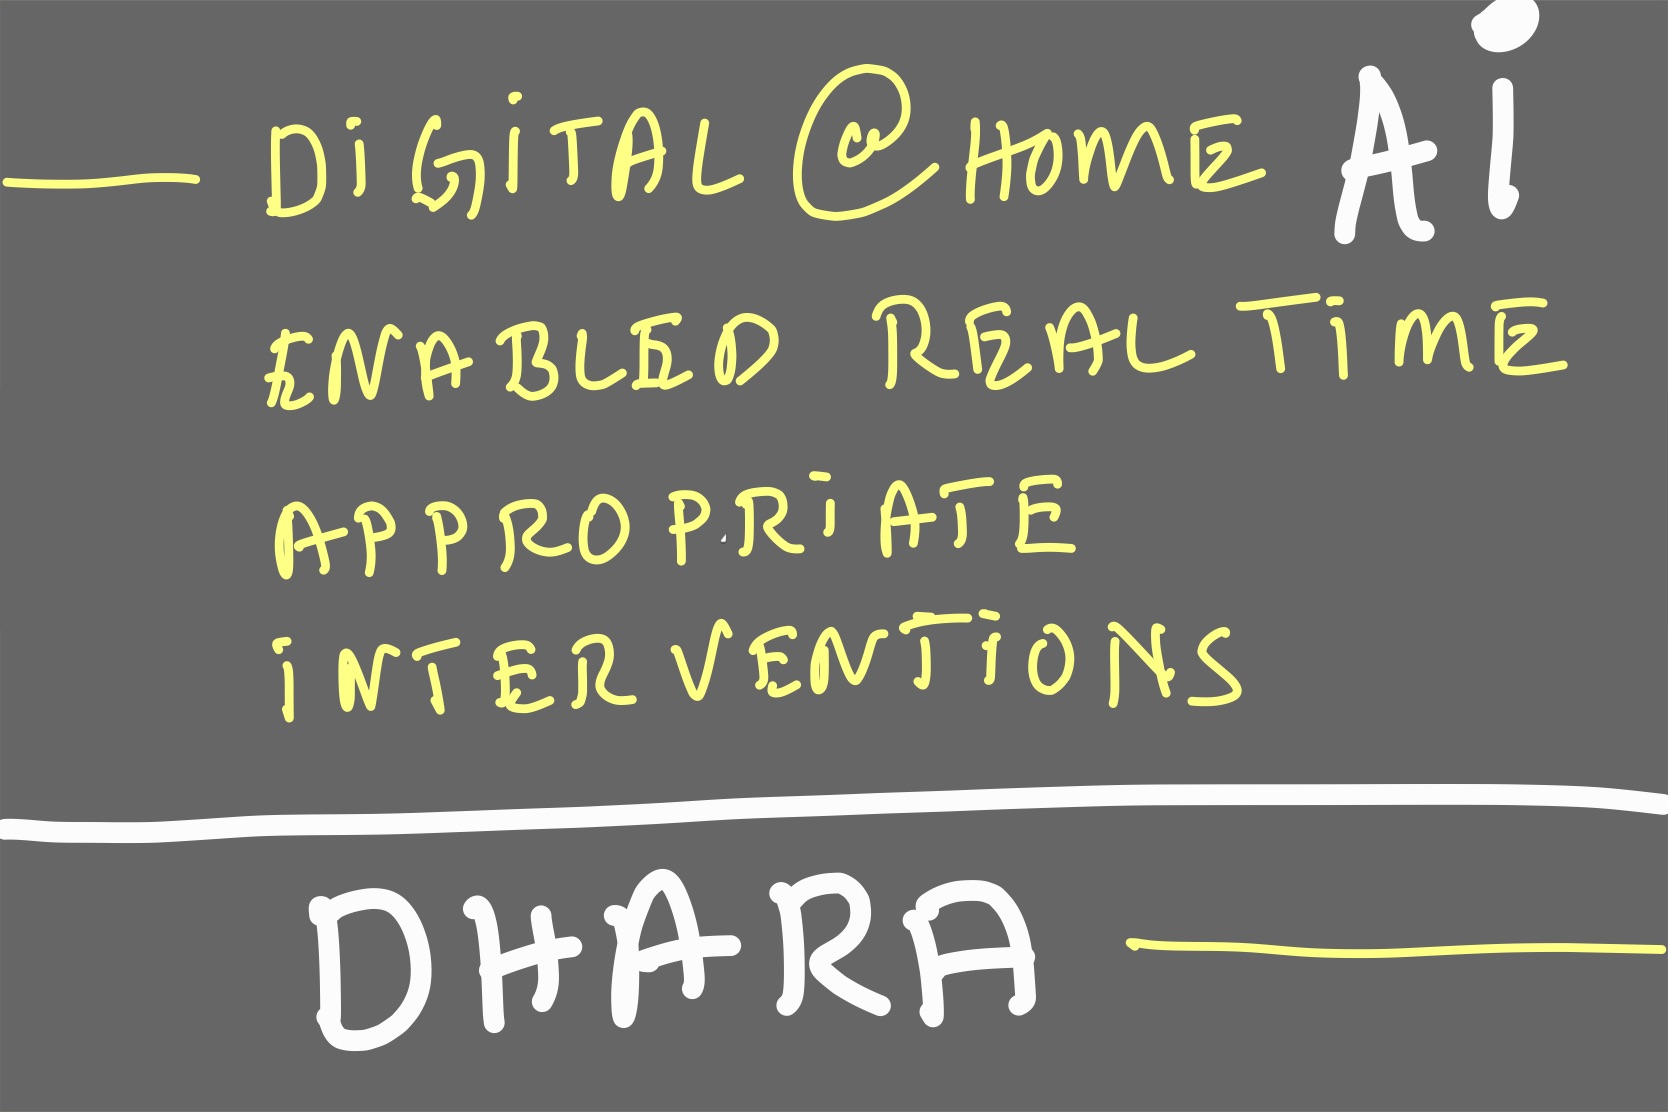 DiGiTAL @ HOME Ai
ENABLED REAL TiME
APPROPRiATE
iNTERVENTiONS
DHARA